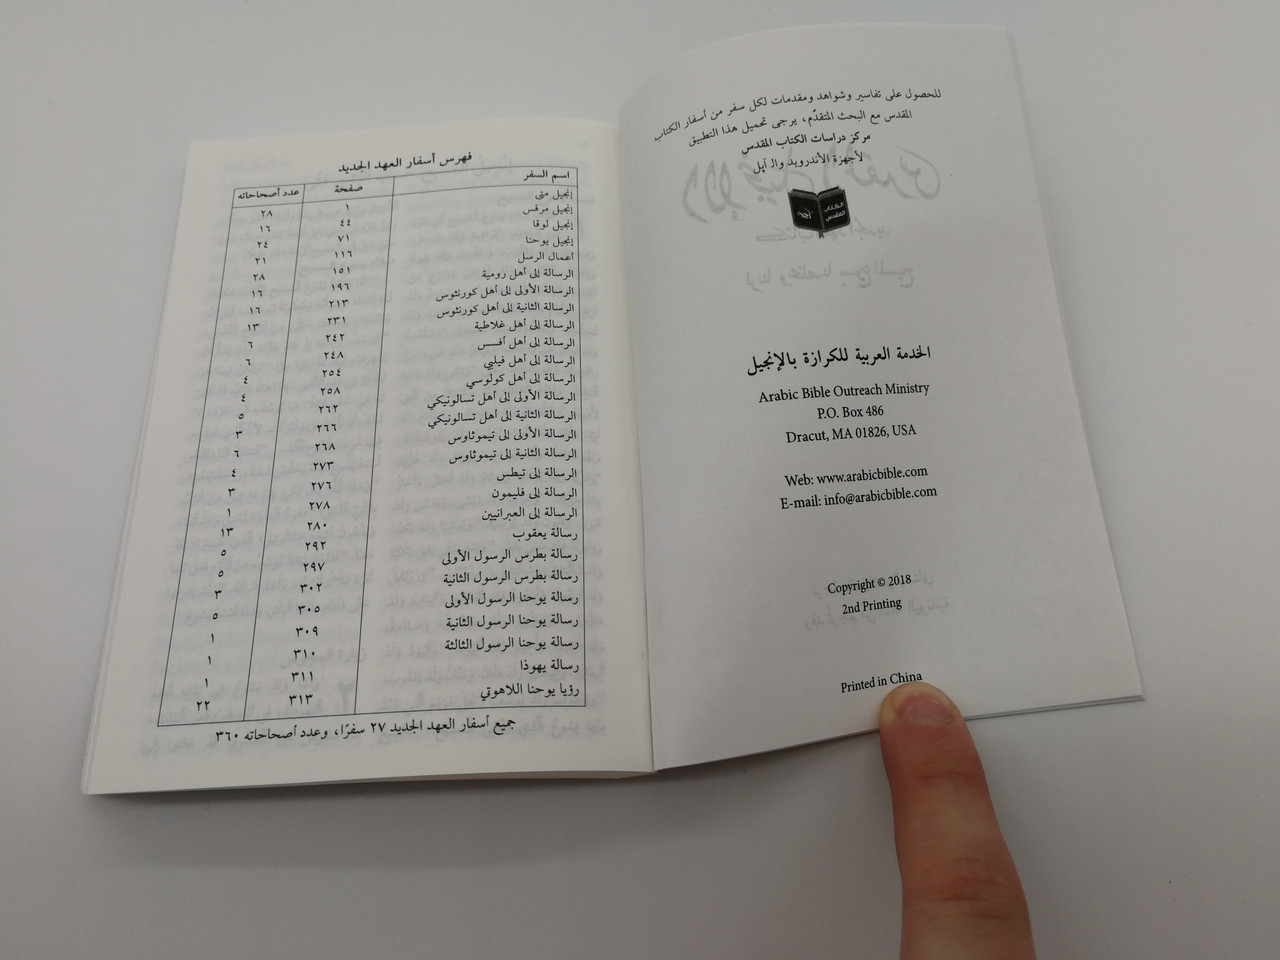 للحصول على تفاسير وشواهد ومقدمات لكل سفر من أسفار الكتاب
المقدس مع البحث المتقدّم، يرجى تحميل هذا التطبيق
مركز دراسات الكتاب المقدس
لأجهزة الأندرويد والـ آپل
الكتاب المقدس
الخدمة العربية للكرازة بالإنجيل
Arabic Bible Outreach Ministry
P.O. Box 486
Dracut, MA 01826, USA
Web: www.arabicbible.com
E-mail: info@arabicbible.com
Copyright © 2018
2nd Printing
Printed in China
فهرس أسفار العهد الجديد
اسم السفر صفحة عدد أصحاحاته
إنجيل متى ١ ٢٨
إنجيل مرقس ٤٤ ١٦
إنجيل لوقا ٧١ ٢٤
إنجيل يوحنا ١١٦ ٢١
أعمال الرسل ١٥١ ٢٨
الرسالة إلى أهل رومية ١٩٦ ١٦
الرسالة الأولى إلى أهل كورنثوس ٢١٣ ١٦
الرسالة الثانية إلى أهل كورنثوس ٢٣١ ١٣
الرسالة إلى أهل غلاطية ٢٤٢ ٦
الرسالة إلى أهل أفسس ٢٤٨ ٦
الرسالة إلى أهل فيلبي ٢٥٤ ٤
الرسالة إلى أهل كولوسي ٢٥٨ ٤
الرسالة الأولى إلى أهل تسالونيكي ٢٦٢ ٥
الرسالة الثانية إلى أهل تسالونيكي ٢٦٦ ٣
الرسالة الأولى إلى تيموثاوس ٢٦٨ ٦
الرسالة الثانية إلى تيموثاوس ٢٧٣ ٤
الرسالة إلى تيطس ٢٧٦ ٣
الرسالة إلى فليمون ٢٧٨ ١
الرسالة إلى العبرانيين ٢٨٠ ١٣
رسالة يعقوب ٢٩٢ ٥
رسالة بطرس الرسول الأولى ٢٩٧ ٥
رسالة بطرس الرسول الثانية ٣٠٢ ٣
رسالة يوحنا الرسول الأولى ٣٠٥ ٥
رسالة يوحنا الرسول الثانية ٣٠٩ ١
رسالة يوحنا الرسول الثالثة ٣١٠ ١
رسالة يهوذا ٣١١ ١
رؤيا يوحنا اللاهوتي ٣١٣ ٢٢
جميع أسفار العهد الجديد ٢٧ سفرًا، وعدد أصحاحاته ٣٦٠